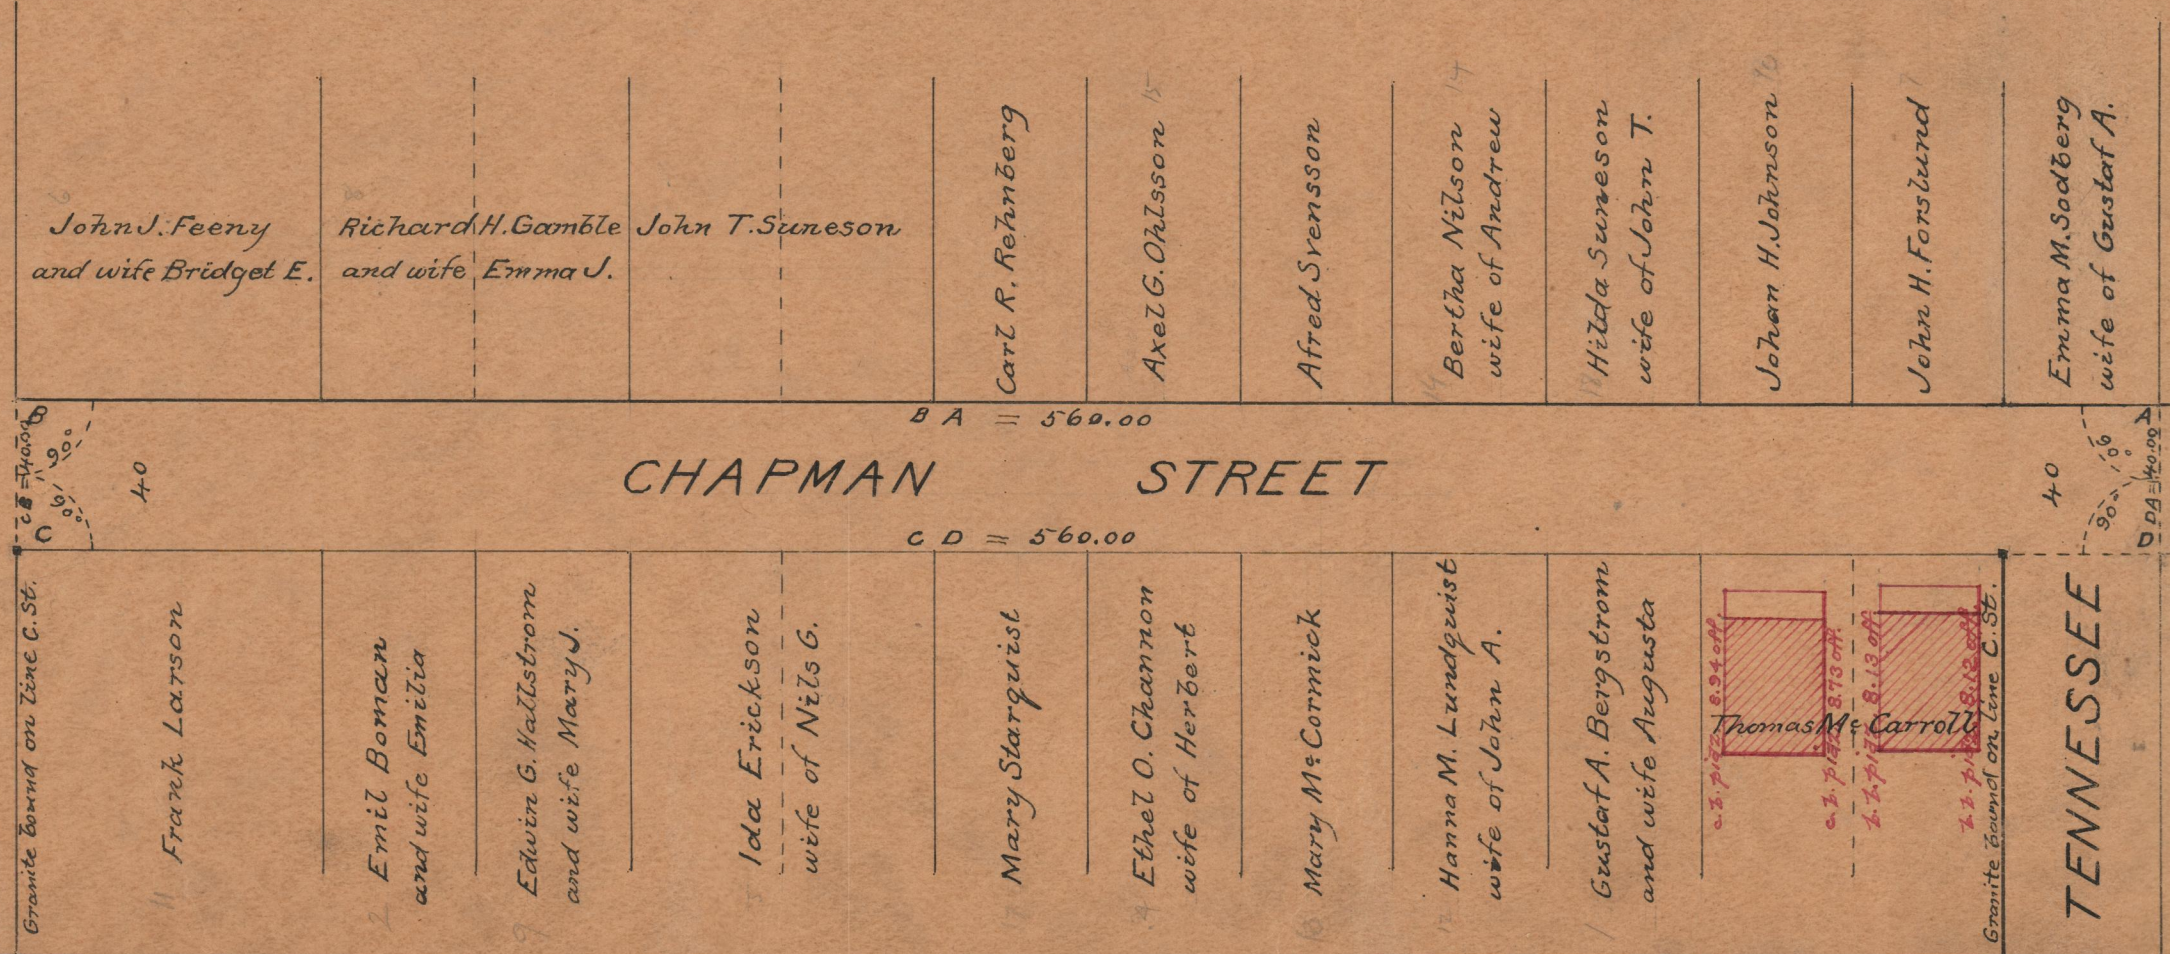 John J. Feeny
and wife Bridget E.
Richard H. Gamble
and wife Emma J.
John T. Suneson
Carl R. Rehnberg
Axel G. Ohlsson
15
Alfred Svensson
Bertha Nilson
wife of Andrew
14
Hilda Suneson
wife of John T.
Johan H. Johnson
John H. Forslund
Emma M. Sodberg
wife of Gustaf A.
B A = 560.00
B
CB = 40.00
90°
90°
C
40
CHAPMAN STREET
40
A
90°
90°
DA = 40.00
D
C D = 560.00
Granite bound on line C. St.
Frank Larson
11
Emil Boman
and wife Emilia
2
Edwin G. Hallstrom
and wife Mary J.
9
Ida Erickson
wife of Nils G.
Mary Starquist
Ethel O. Channon
wife of Herbert
Mary Mc Cormick
Hanna M. Lundquist
wife of John A.
Gustaf A. Bergstrom
and wife Augusta
1
c.b. piaz. 8.94 off.
c.b. piaz. 8.73 off.
Thomas Mc Carroll
b.b. piaz. 8.13 off
b.b. piaz. 8.12 off.
Granite bound on line C. St.
TENNESSEE